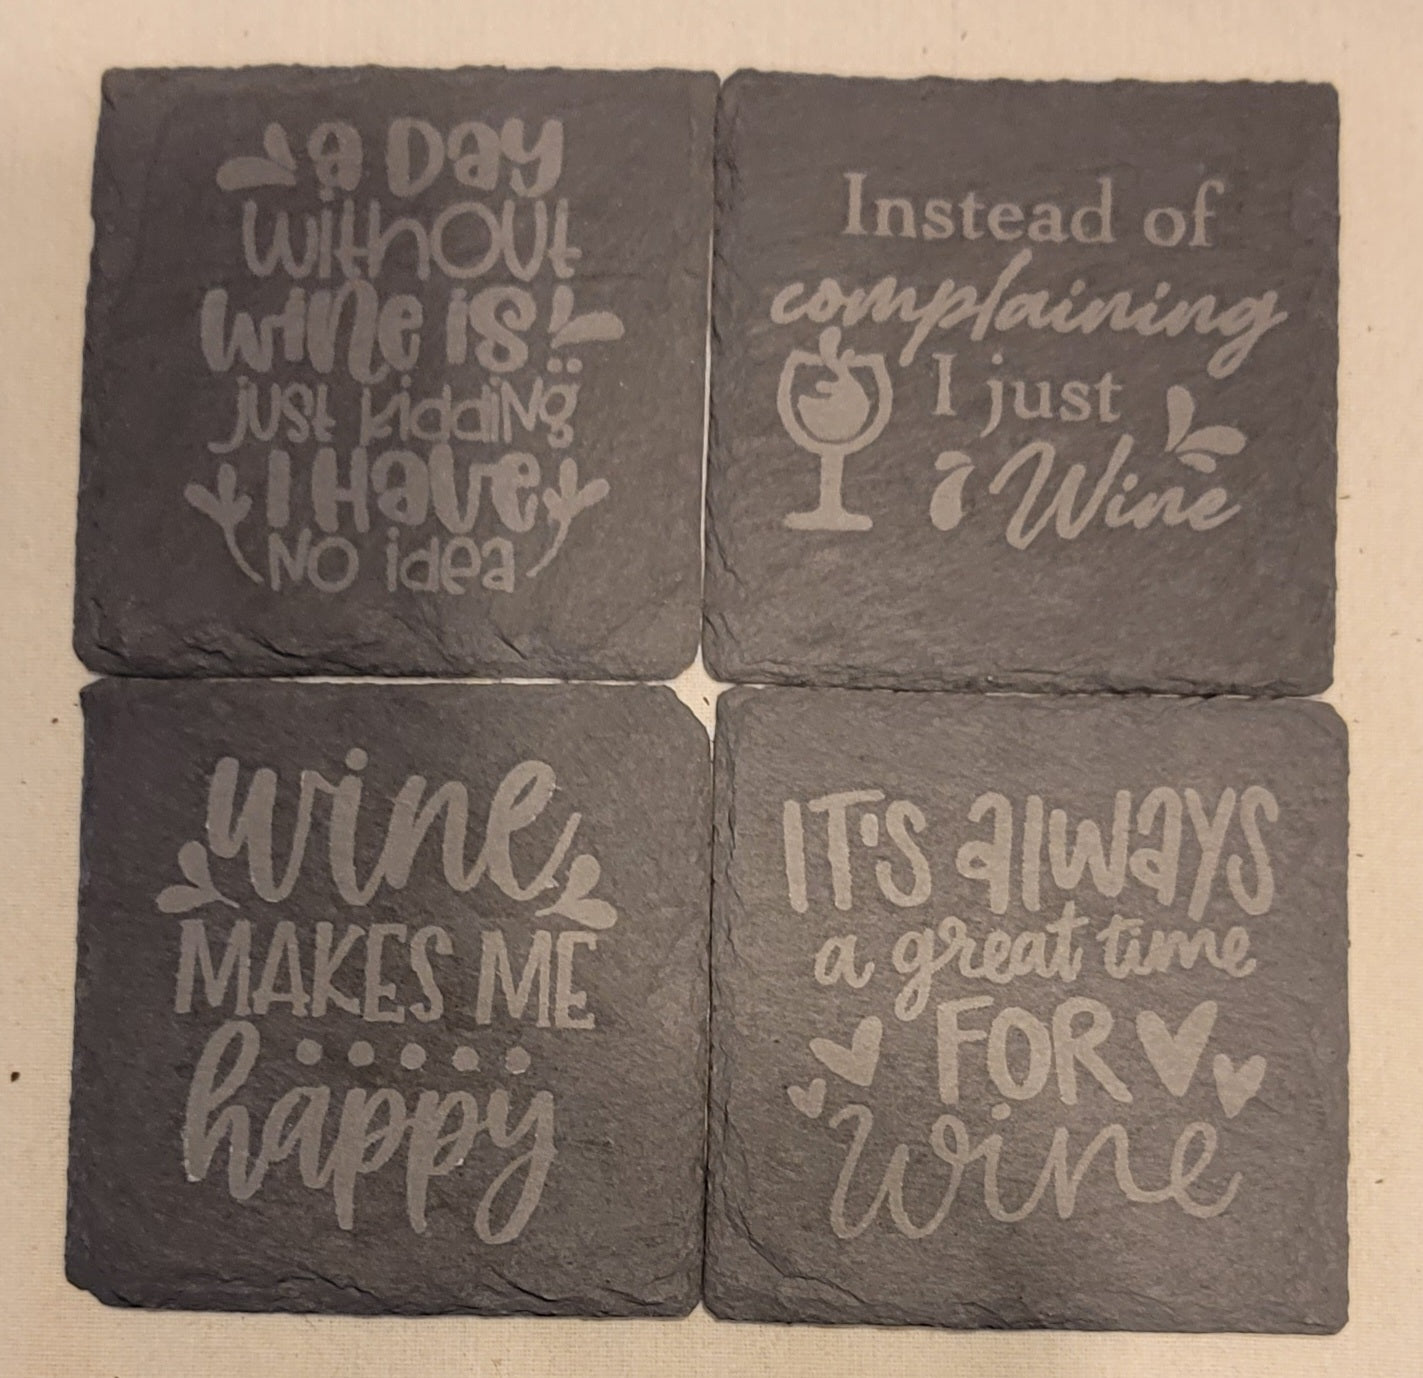 a Day
without
wine is
just kidding
I Have
No idea
Instead of
complaining
I just
Wine
wine
MAKES ME
happy
IT'S alwaYS
a great time
FOR
wine